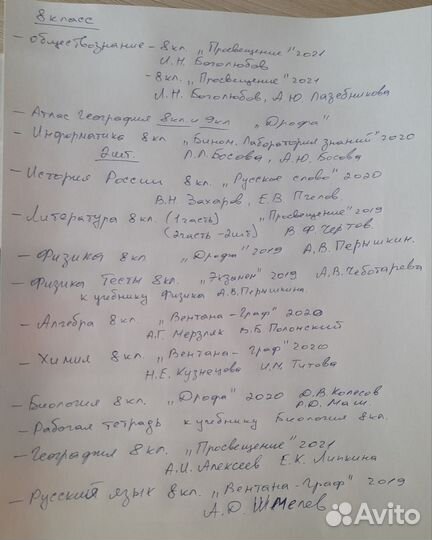 8 класс
- Обществознание - 8 кл. „Просвещение" 2021
И.Н. Боголюбов
- 8 кл. „Просвещение" 2021
Л.Н. Боголюбов, А.Ю. Лазебникова
- Атлас География 8 кл. и 9 кл „Дрофа"
- Информатика 8 кл. „Бином. Лаборатория знаний" 2020
2 шт. Л.Л. Босова, А.Ю. Босова
- История России 8 кл. „Русское слово" 2020
В.Н. Захаров, Е.В. Пчелов.
- Литература 8 кл. (1 часть) „Просвещение" 2019
(2 часть - 2 шт) В.Ф. Чертов
- Физика 8 кл „Дрофа" 2019 А.В. Перышкин.
- Физика Тесты 8 кл. „Экзамен" 2019 А.В. Чеботарева
к учебнику Физика А.В. Перышкина
- Алгебра 8 кл. „Вентана-Граф" 2020
А.Г. Мерзляк В.Б. Полонский
- Химия 8 кл. „Вентана-Граф" 2020
Н.Е. Кузнецова И.М. Титова
- Биология 8 кл. „Дрофа" 2020 Д.В. Колесов
Р.Д. Маш.
- Рабочая тетрадь к учебнику Биология 8 кл.
- География 8 кл. „Просвещение" 2021
А.И. Алексеев Е.К. Липкина
- Русский язык 8 кл. „Вентана-Граф" 2019
А.Д. Шмелев
Avito